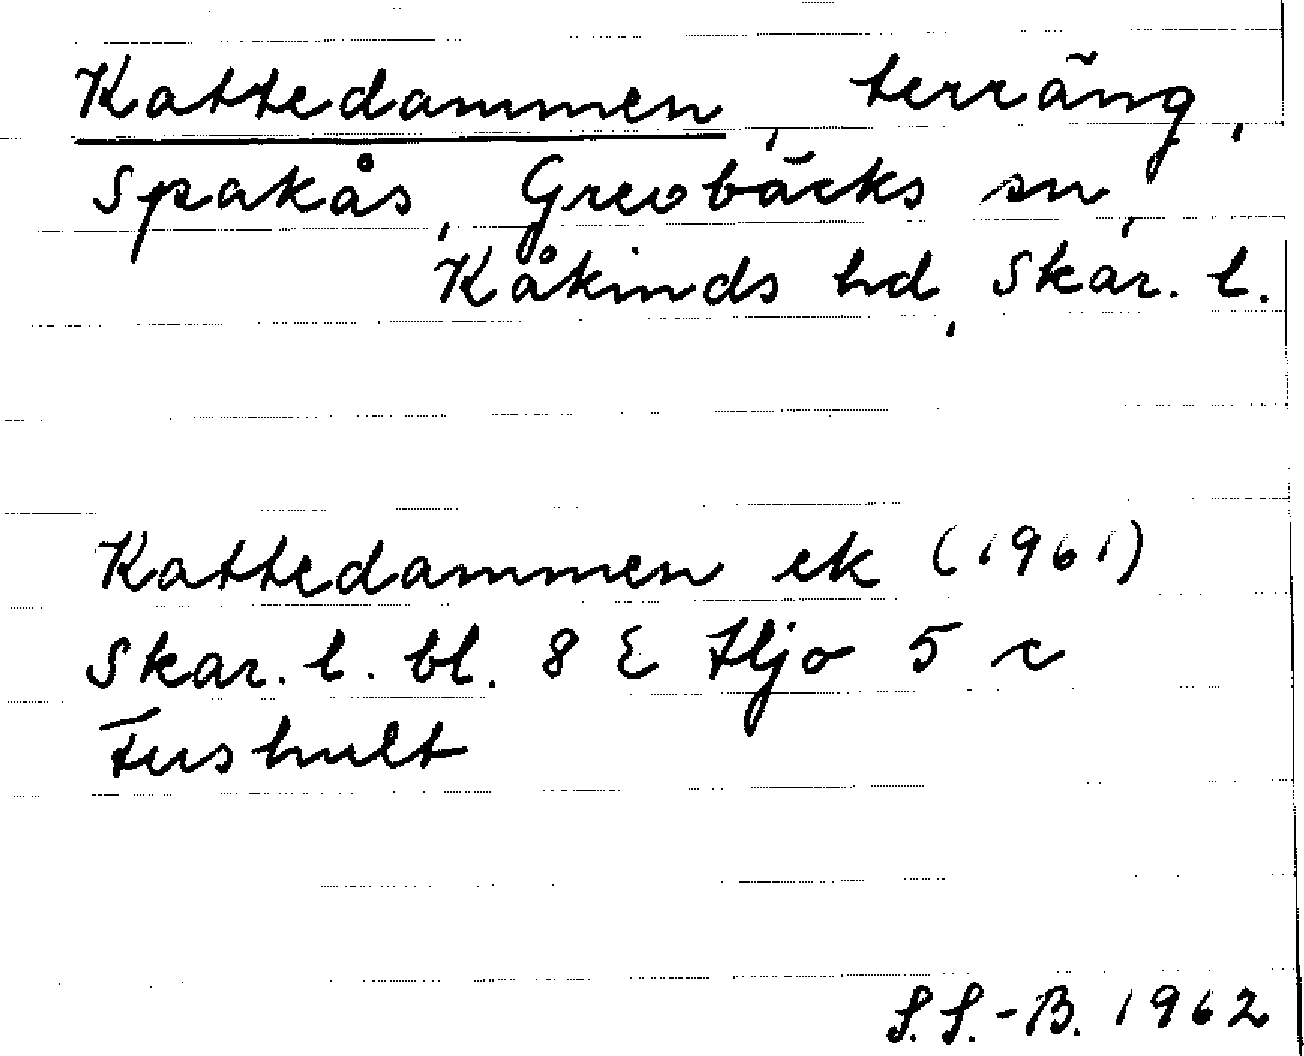 Kattedammen, terräng,
Spakås, Grevbäcks sn,
Kåkinds hd, Skar. l.
Kattedammen ek (1961)
Skar. l. bl. 8 E Hjo 5 c
Fushult
S.S.-B. 1962